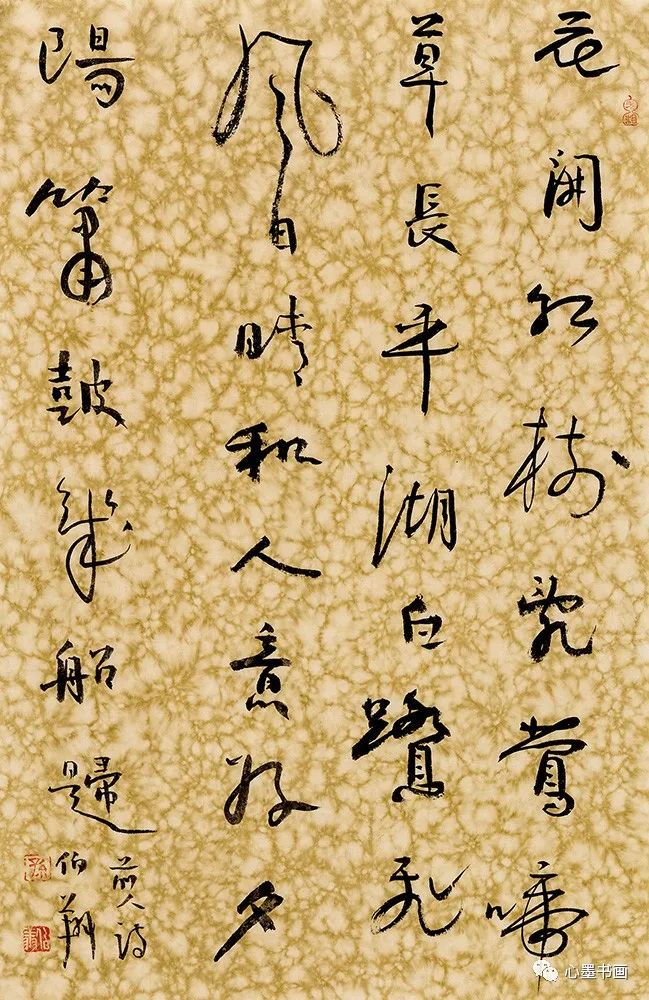 花開紅樹亂鶯啼
草長平湖白鷺飛
風日晴和人意好夕
陽簫鼓幾船歸
前人詩
伯翔
心墨书画